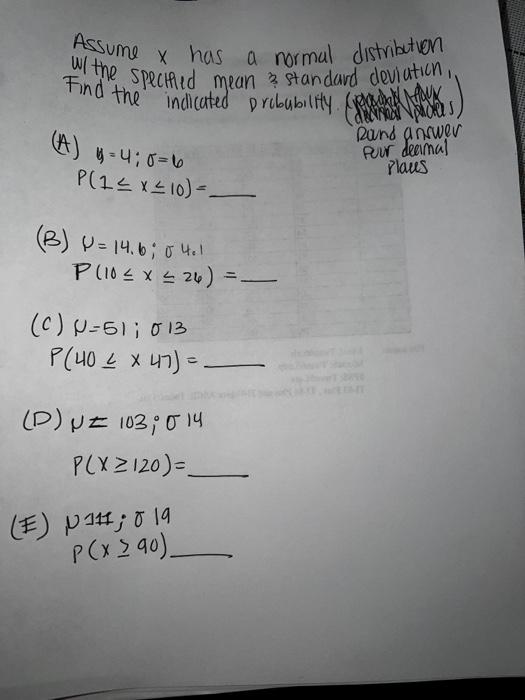 Assume x has a normal distribution
w/ the specified mean & standard deviation,
Find the indicated probability. (
Round answer
four decimal
places
(A) μ=4; σ=6
P(1 ≤ x ≤ 10) = ____
(B) μ= 14.6; σ 4.1
P(10 ≤ x ≤ 26) = ____
(C) μ=51; σ 13
P(40 ≤ x 47) = ____
(D) μ= 103; σ 14
P(x ≥ 120)= ____
(E) μ 111; σ 19
P(x ≥ 90) ____